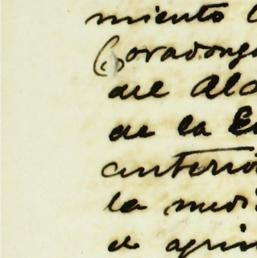 miento
Covadonga
del Alc
de la E
anterio
la medi
e agrim